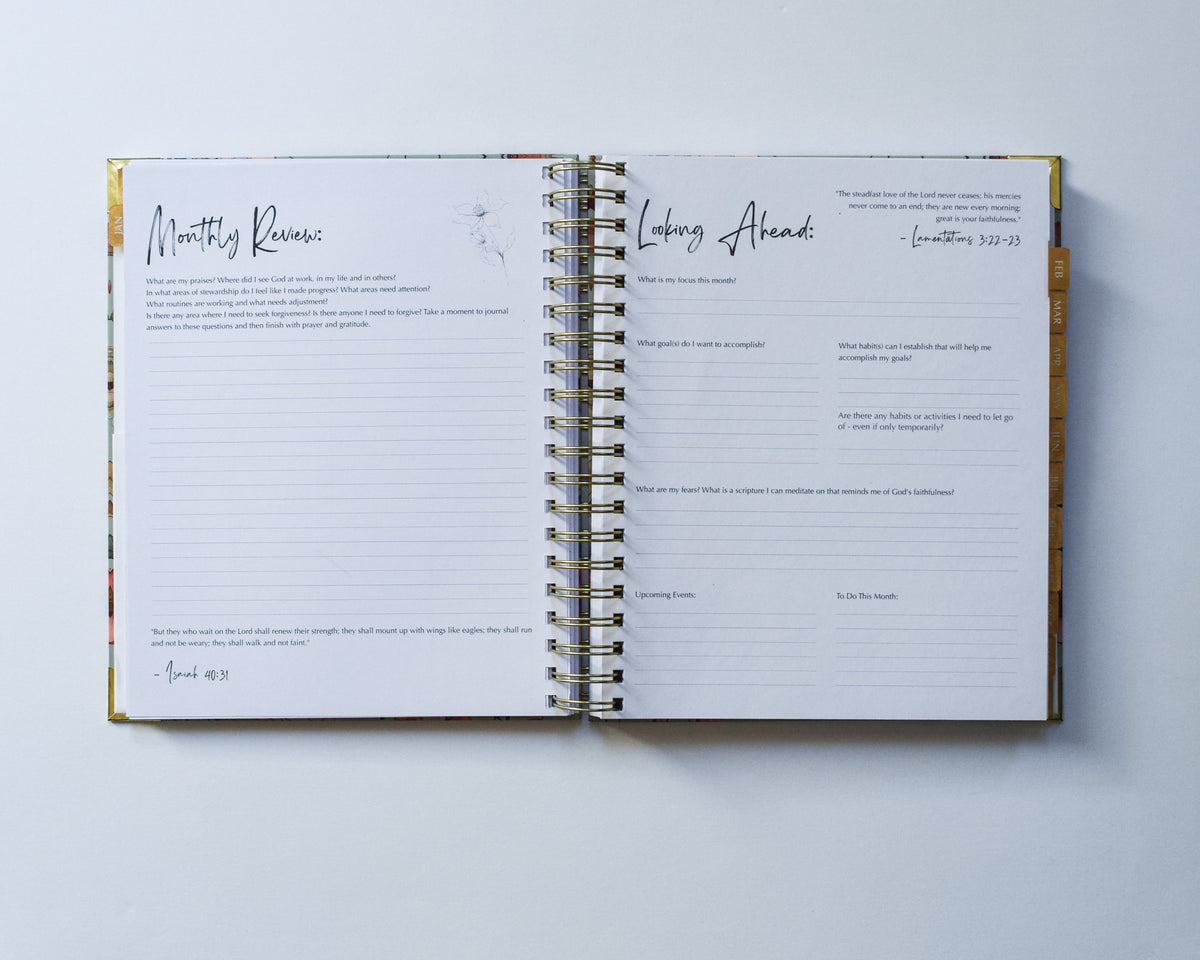 Monthly Review:
What are my praises? Where did I see God at work, in my life and in others?
In what areas of stewardship do I feel like I made progress? What areas need attention?
What routines are working and what needs adjustment?
Is there any area where I need to seek forgiveness? Is there anyone I need to forgive? Take a moment to journal
answers to these questions and then finish with prayer and gratitude.
"But they who wait on the Lord shall renew their strength; they shall mount up with wings like eagles; they shall run
and not be weary; they shall walk and not faint."
- Isaiah 40:31
JAN
Looking Ahead:
"The steadfast love of the Lord never ceases; his mercies
never come to an end; they are new every morning;
great is your faithfulness."
- Lamentations 3:22-23
What is my focus this month?
What goal(s) do I want to accomplish?
What habit(s) can I establish that will help me
accomplish my goals?
Are there any habits or activities I need to let go
of - even if only temporarily?
What are my fears? What is a scripture I can meditate on that reminds me of God's faithfulness?
Upcoming Events:
To Do This Month:
FEB
MAR
APR
MAY
JUN
JUL